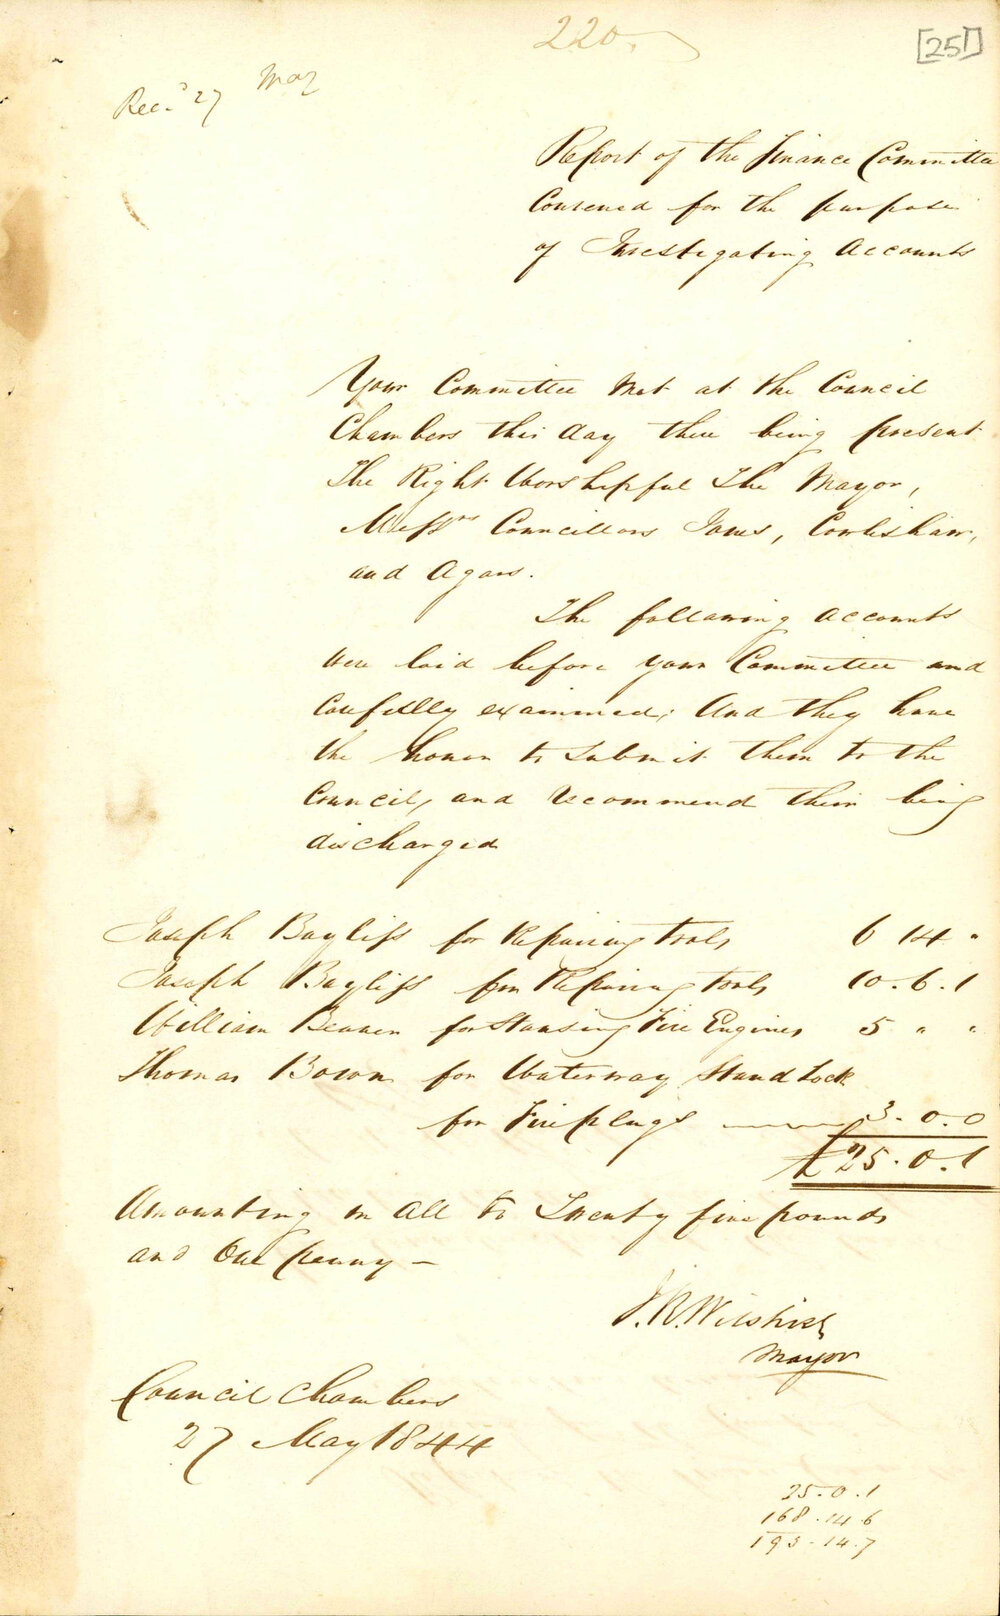 220.
[251]
Rec.d 27 May
Report of the Finance Committee
Convened for the purpose
of Investigating Accounts
Your Committee Met at the Council
Chambers this day there being present
The Right Worshipful The Mayor,
Messrs Councillors Iones, Cowlishaw,
and Agars.
The following accounts
were laid before your Committee and
Carefully examined; And they have
the honor to submit them to the
Council, and recommend their being
discharged
Joseph Bayliss for Repairing Tools 6 14 "
Joseph Bayliss for Repairing tools 10. 6. 1
William Beaven for Standing Fire Engines 5 " "
Thomas Bown for Waterway Stand Cock
for Fireplugs 3. 0. 0
£ 25. 0. 1
Amounting in all to Twenty five pounds
and One penny —
J.R. Wilshire
Mayor
Council Chambers
27 May 1844
25. 0. 1
168. 14. 6
193. 14. 7